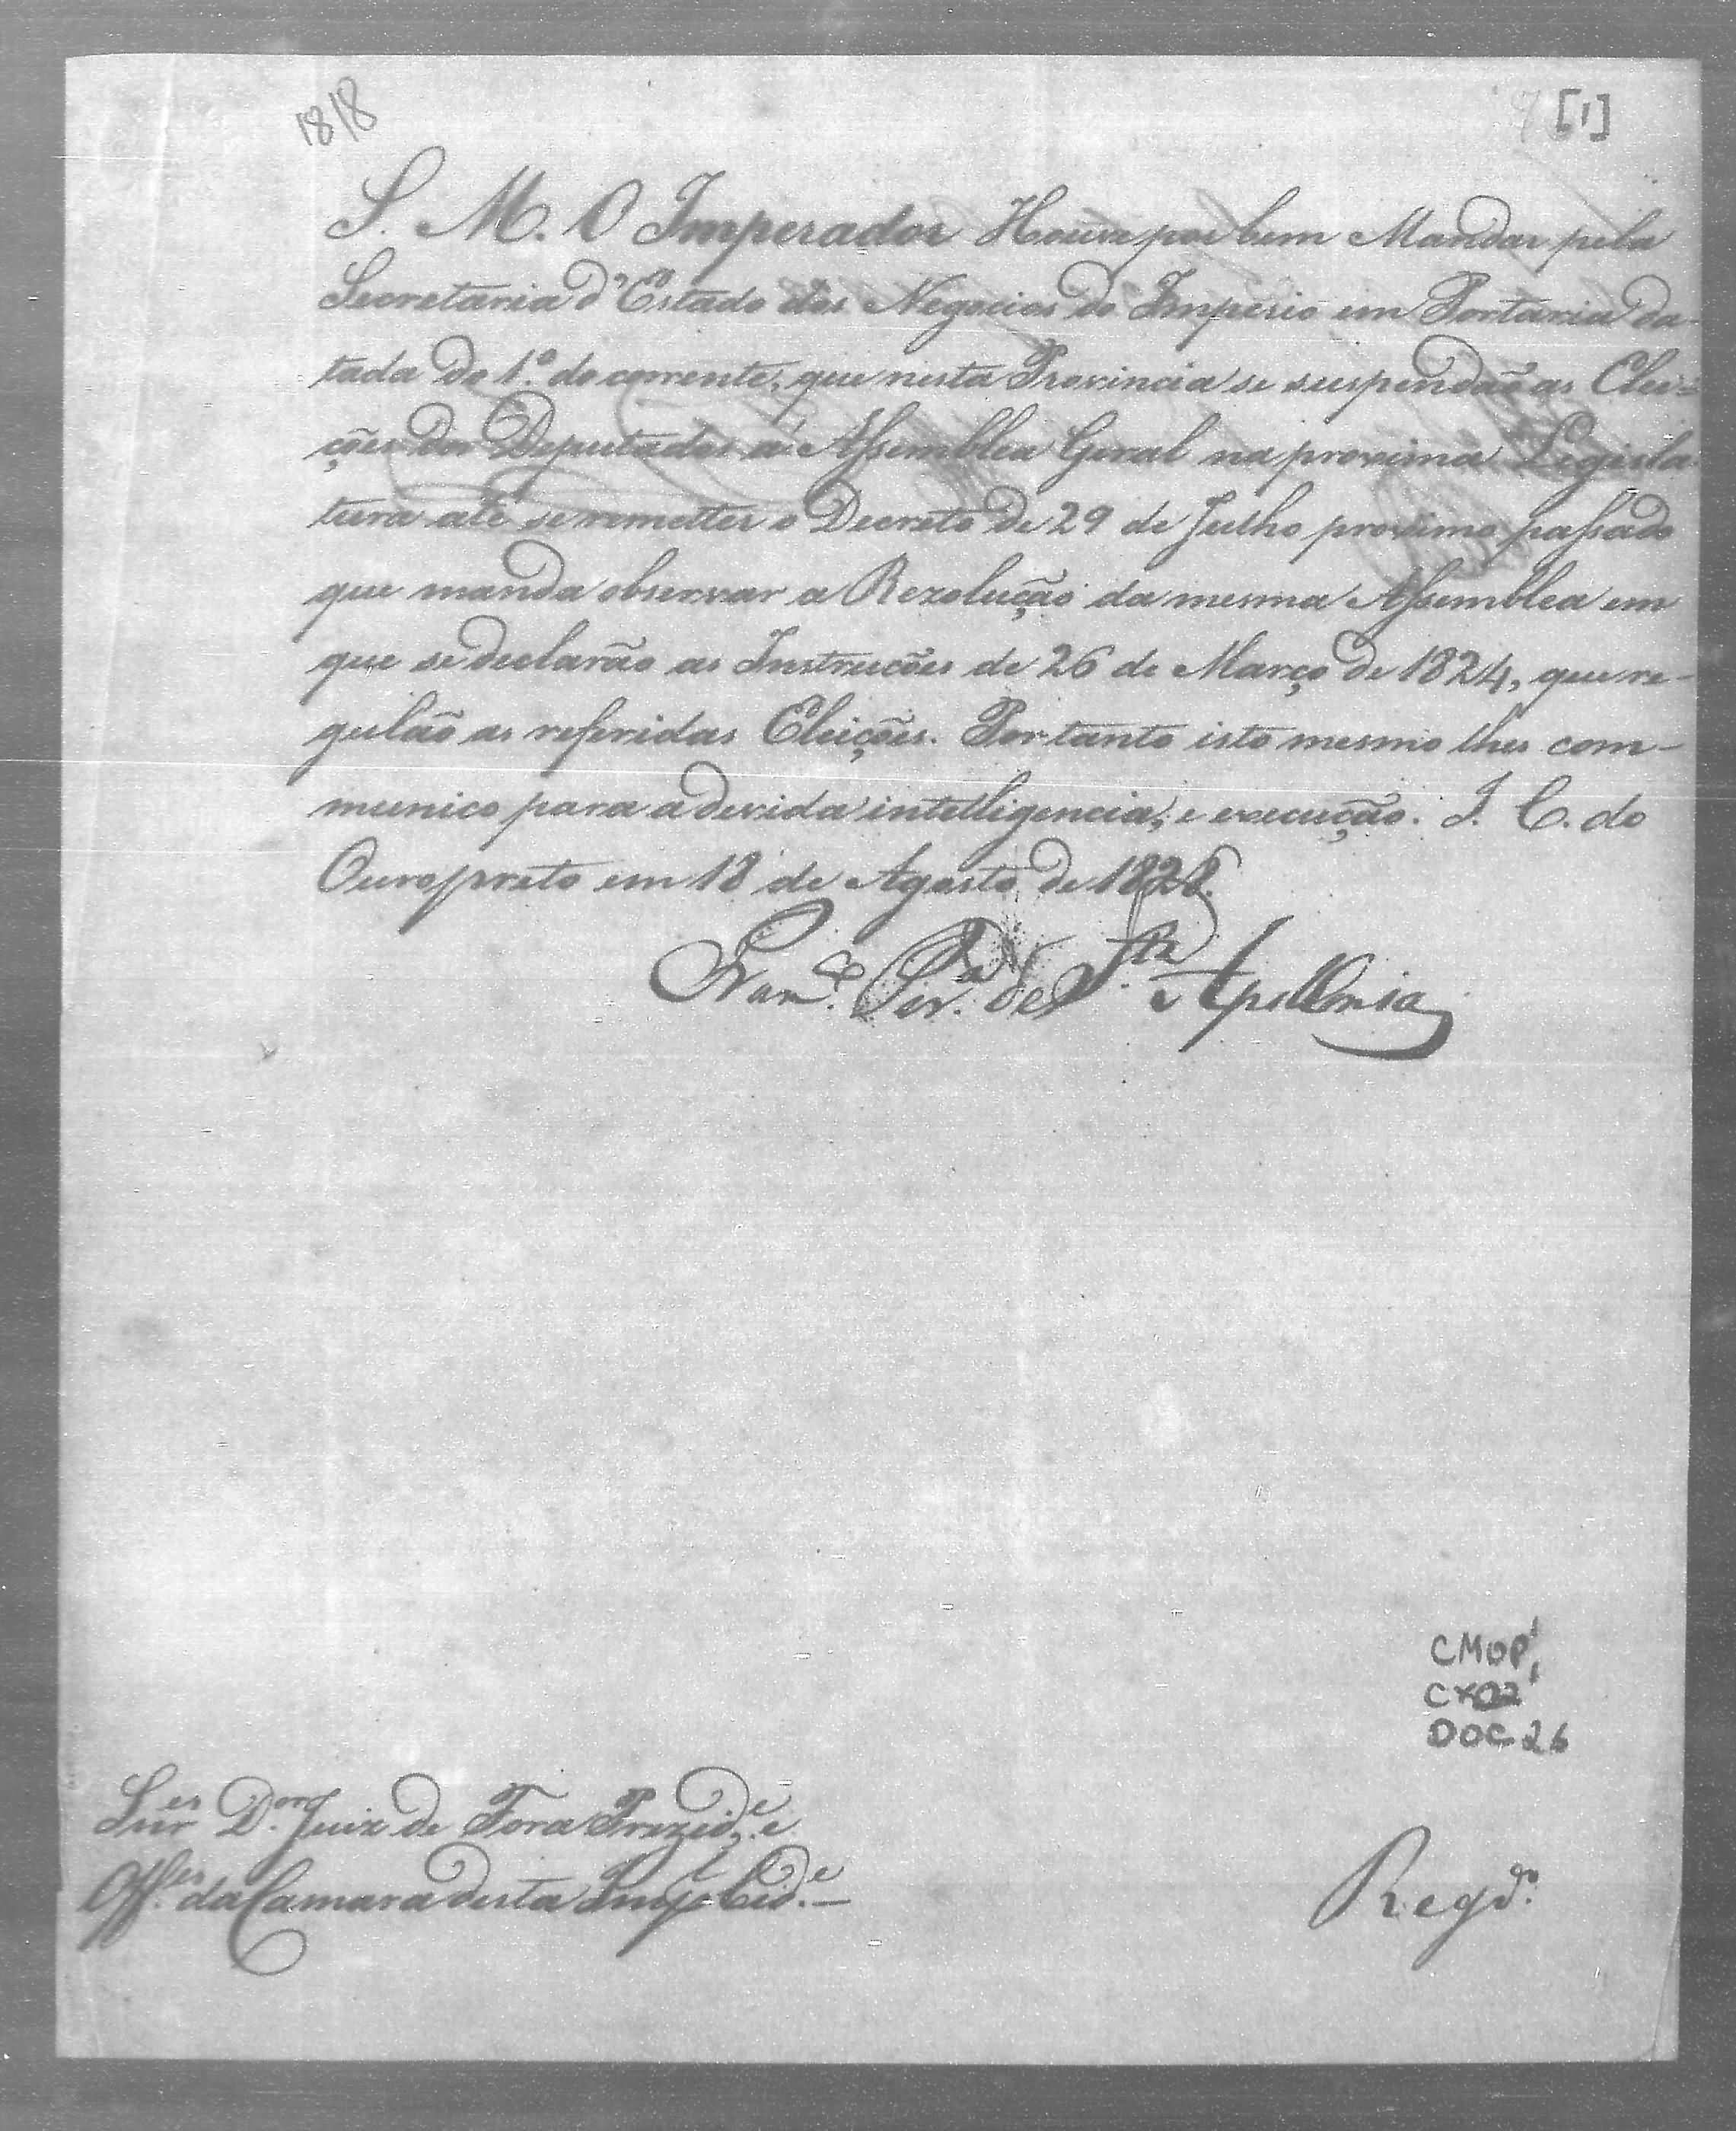 1818
[1]
S. M. O Imperador Houve por bem Mandar pela
Secretaria d'Estado dos Negocios do Imperio em Portaria da-
tada do 1.º do corrente, que nesta Provincia se suspendão as Elei=
ções dos Deputados á Assemblea Geral na proxima Legisla-
tura até se remetter o Decreto de 29 de Julho proximo passado
que manda observar a Rezolução da mesma Assemblea em
que se declarão as Instrucões de 26 de Março de 1824, que re-
gulão as referidas Eleições. Portanto isto mesmo lhes com-
munico para a devida intelligencia, e execução. I. C. do
Ouropreto em 18 de Agosto de 1828.
Fran.co Per.a de S.ta Apollonia
CMOP
CX02
DOC 26
Snr.es D.or Juiz de Fora Prezid.e e
Off.es da Camara desta Imp.l Cid.e
Reg.do